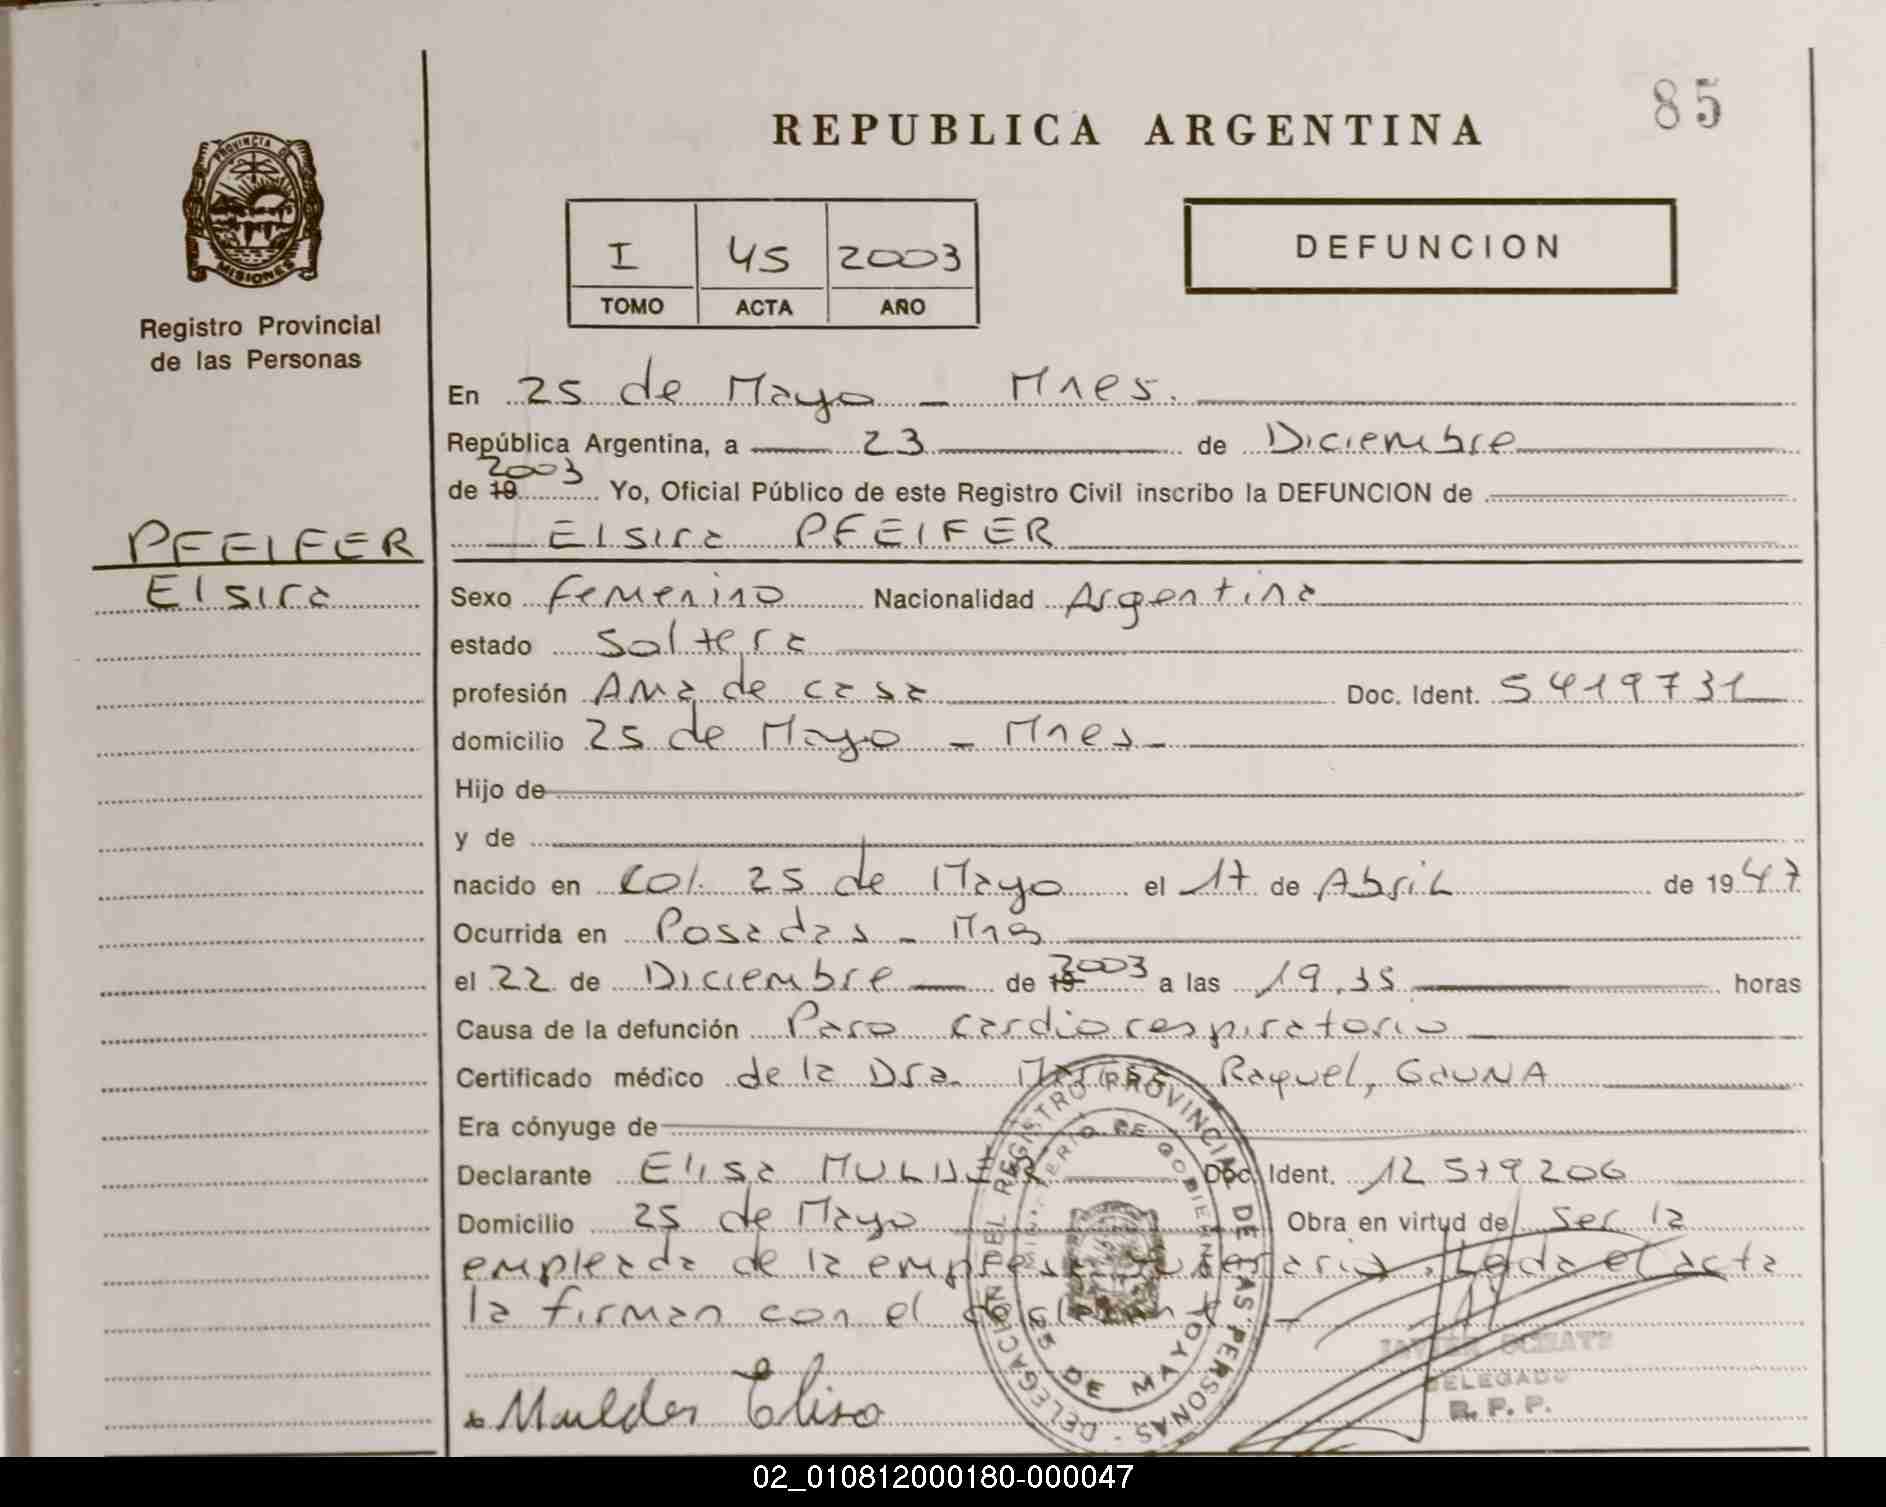 85
REPUBLICA ARGENTINA
PROVINCIA DE
MISIONES
Registro Provincial
de las Personas
I 45 2003
TOMO ACTA AÑO
DEFUNCION
En 25 de Mayo - Mnes.
República Argentina, a 23 de Diciembre
2003
de 19 Yo, Oficial Público de este Registro Civil inscribo la DEFUNCION de
PFEIFER
Elsira
Elsira PFEIFER
Sexo femenino Nacionalidad Argentina
estado Soltera
profesión Ama de casa Doc. Ident. 5419731
domicilio 25 de Mayo - Mnes -
Hijo de
y de
nacido en Col. 25 de Mayo el 17 de Abril de 1947
Ocurrida en Posadas - Mns
el 22 de Diciembre de 19 2003 a las 19,35 horas
Causa de la defunción Paro cardiorespiratorio
Certificado médico de la Dra. Raquel, GAUNA
Era cónyuge de
Declarante Elisa Doc. Ident. 12 579206
Domicilio 25 de Mayo Obra en virtud de Ser la
empleada de la empresa Leida el acta
la firman con el
Elisa
DELEGACION DEL REGISTRO PROVINCIAL DE LAS PERSONAS -
MINISTERIO DE GOBIERNO
25 DE MAYO
DELEGADO
R. P. P.
02_010812000180-000047